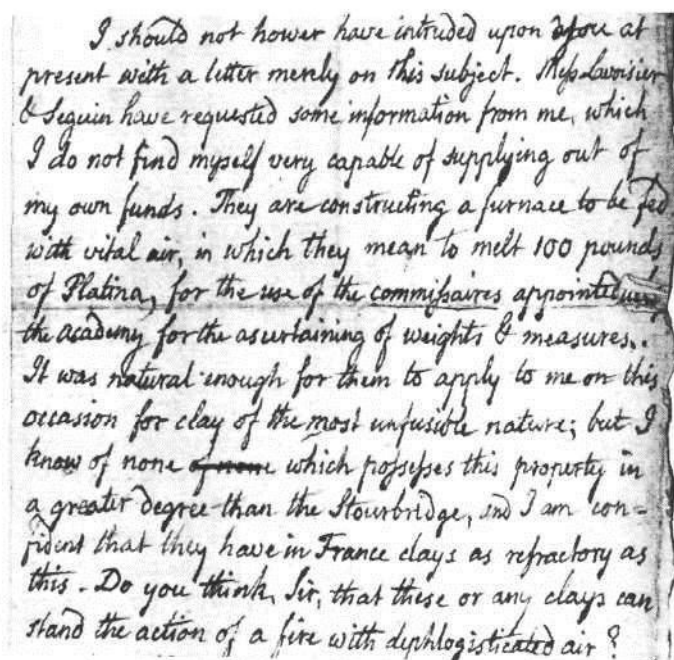 I should not hower have intruded upon you at
present with a letter merely on this subject. Mess Lavoisier
& Seguin have requested some information from me, which
I do not find myself very capable of supplying out of
my own funds. They are constructing a furnace to be fed
with vital air, in which they mean to melt 100 pounds
of Platina, for the use of the commissaires appointed
the academy for the ascertaining of weights & measures.
It was natural enough for them to apply to me on this
occasion for clay of the most unfusible nature; but I
know of none of none which possesses this property in
a greater degree than the Stourbridge, and I am con-
fident that they have in France clays as refractory as
this. Do you think, Sir, that these or any clays can
stand the action of a fire with dephlogisticated air?